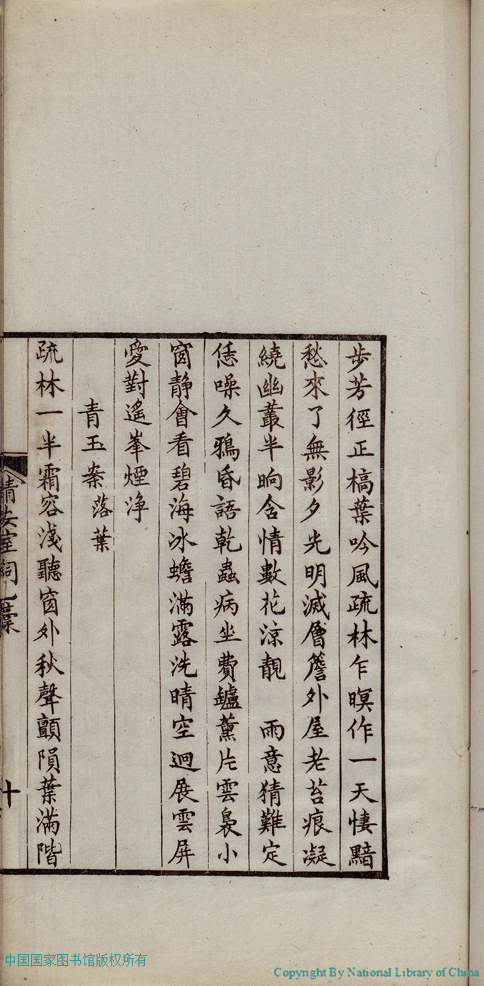 步芳徑正槁葉吟風疏林乍暝作一天悽黯
愁來了無影夕光明滅層簷外屋老苔痕凝
繞幽叢半晌含情數花涼靚　雨意猜難定
恁噪久鴉昏語乾蟲病坐費鑪薰片雲裊小
窗静會看碧海冰蟾滿露洗晴空迥展雲屏
愛對遙峯煙净
青玉案落葉
疏林一半霜容淺聽窗外秋聲顫隕葉滿階
室詞
十
中国国家图书馆版权所有
Copyright By National Library of China